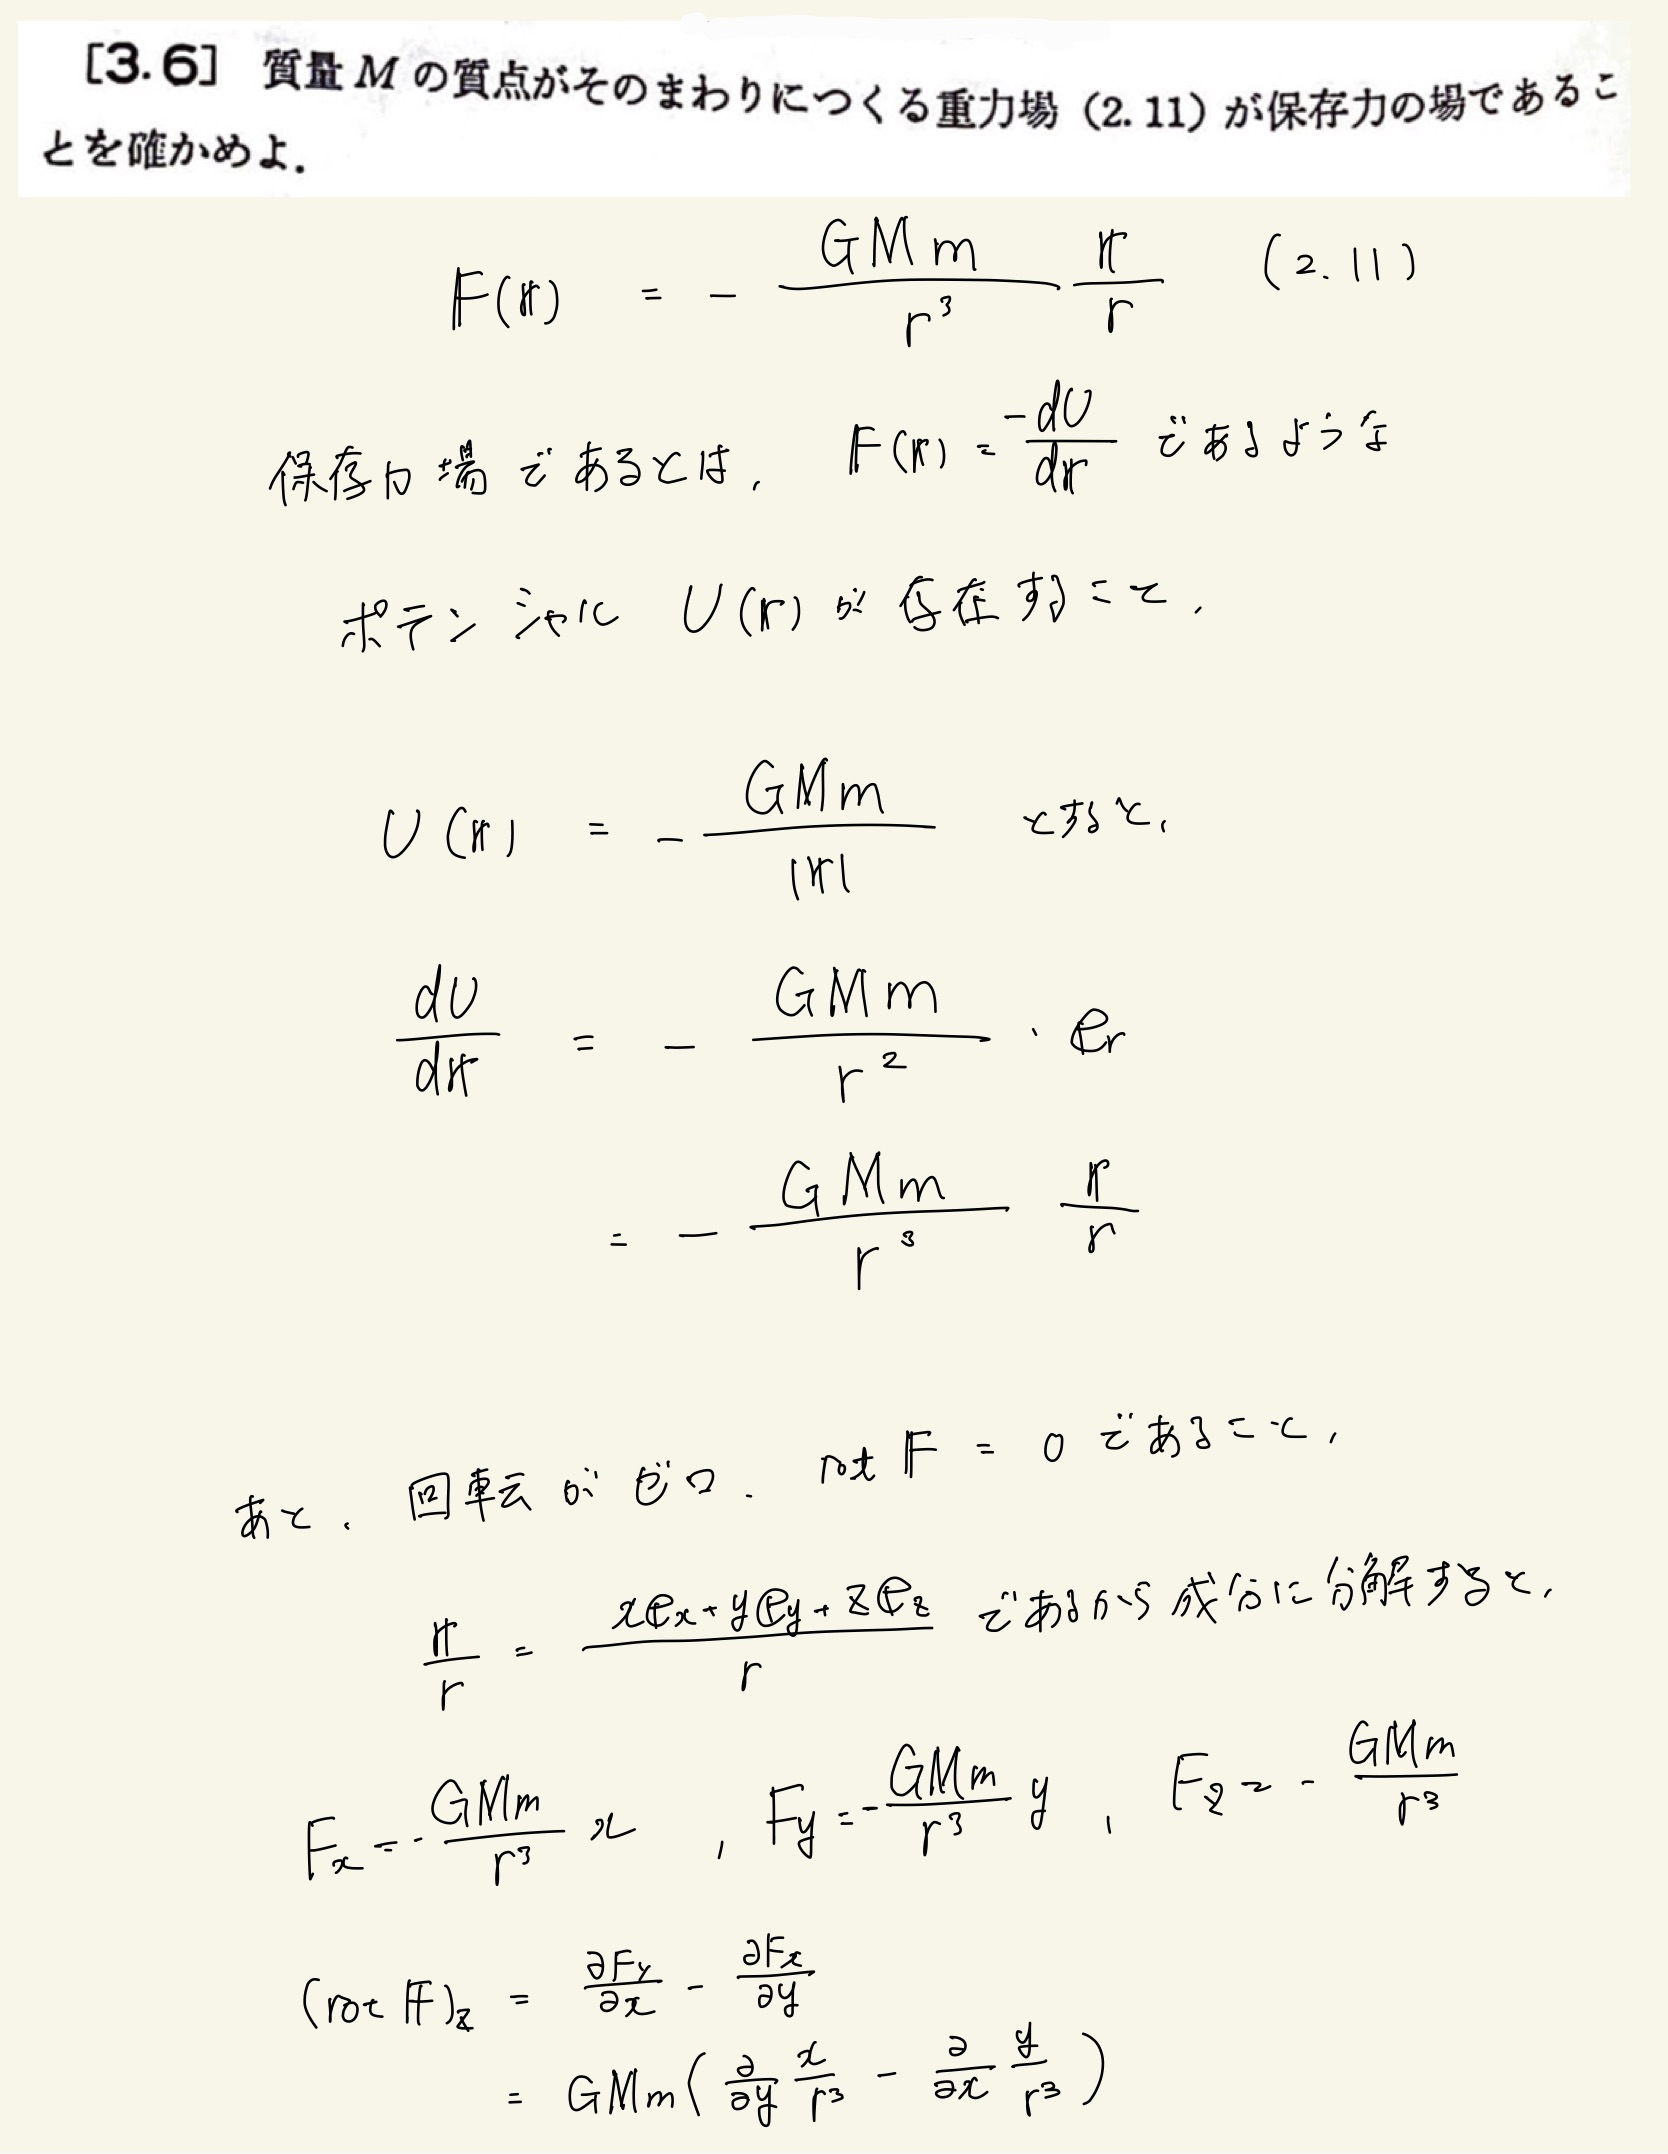 [3.6] 質量 M の質点がそのまわりにつくる重力場 (2.11) が保存力の場であるこ
とを確かめよ.
𝔽(𝕣) = - GMm/r³ 𝕣/r (2.11)
保存力場であるとは, 𝔽(𝕣) = -dU/d𝕣 であるような
ポテンシャル U(𝕣) が存在すること,
U(𝕣) = - GMm/|𝕣| とすると,
dU/d𝕣 = - GMm/r² · 𝕖r
= - GMm/r³ 𝕣/r
あと, 回転がゼロ. rot 𝔽 = 0 であること,
𝕣/r = (x𝕖x + y𝕖y + z𝕖z)/r であるから成分に分解すると,
Fx = - GMm/r³ x , Fy = - GMm/r³ y , Fz = - GMm/r³
(rot 𝔽)z = ∂Fy/∂x - ∂Fx/∂y
= GMm( ∂/∂y x/r³ - ∂/∂x y/r³ )